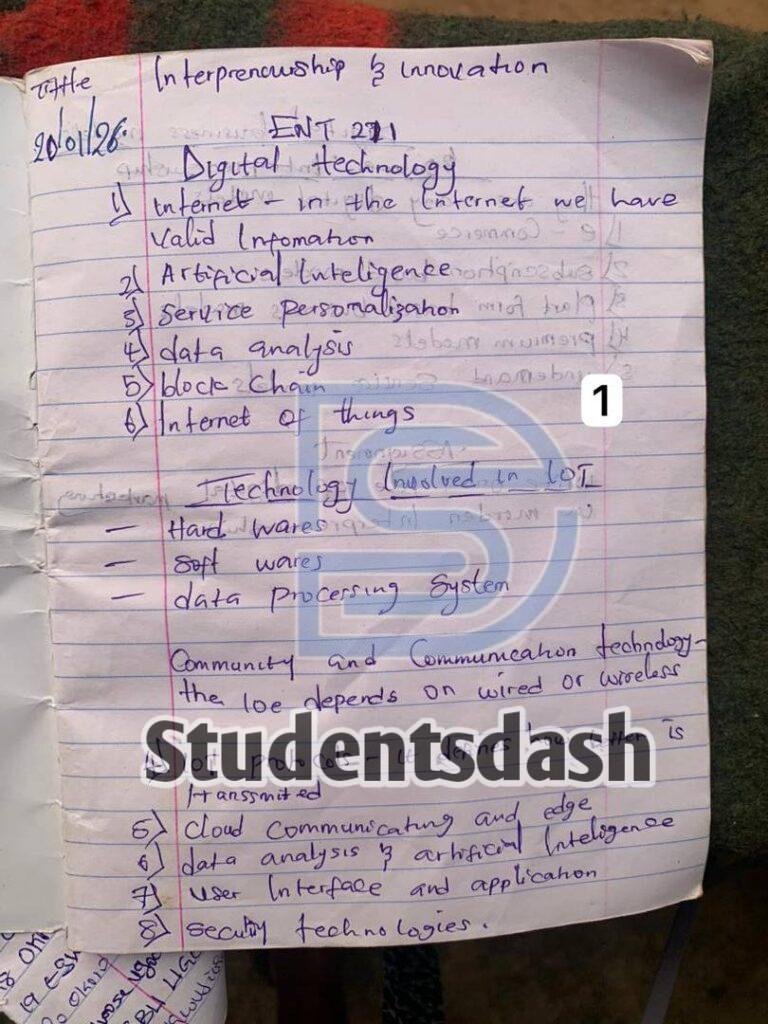 Title Interprenourship & innovation
20/01/26. ENT 211
Digital technology
1) internet - in the internet we have
Valid Infomation
2) Artificial Inteligence
3) Service personalization
4) data analysis
5) block Chain
6) Internet of things
1
Technology Involved in IOT
— Hard wares
— Soft wares
— data processing System
Community and Communication technology-
the IOE depends on wired or wireless
Studentsdash
4) IOT protocols - it defines how is
transsmited
5) Cloud communicating and edge
6) data analysis & artificial Inteligence
7) User Interface and application
8) Security technologies.